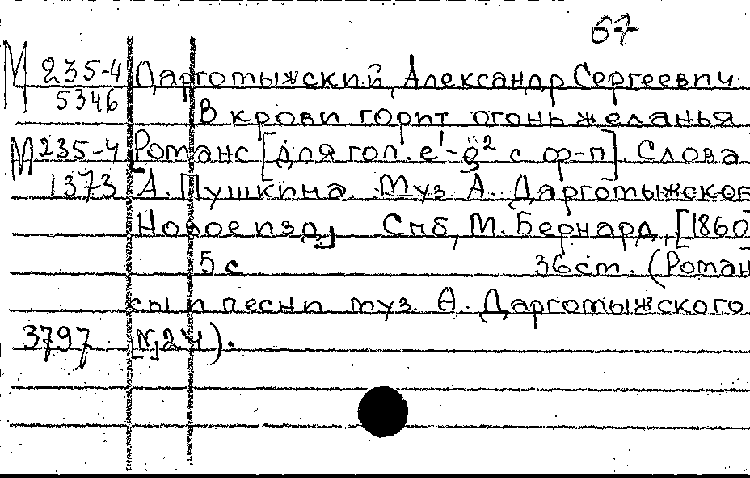 67
М 235-4 Даргомыжский, Александр Сергеевич
5346 В крови горит огонь желанья
М 235-4 Романс [для гол. e¹-g² с ф-п]. Слова
1373 А. Пушкина. Муз. А. Даргомыжског
Новое изд. Спб, М. Бернард, [1860
5 с 36 cm. (Роман
сы и песни муз. А. Даргомыжского
3797 №24).